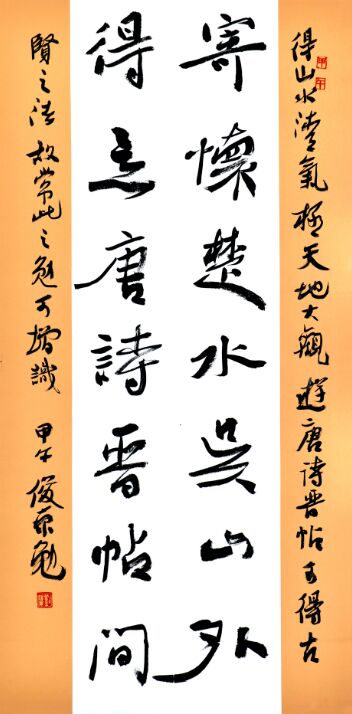 寄懷楚水吳山外
得意唐詩晉帖間
得山水清氣極天地大觀遊唐詩晉帖可得古
賢之法故常此之勉可增識甲午俊勉
甲午